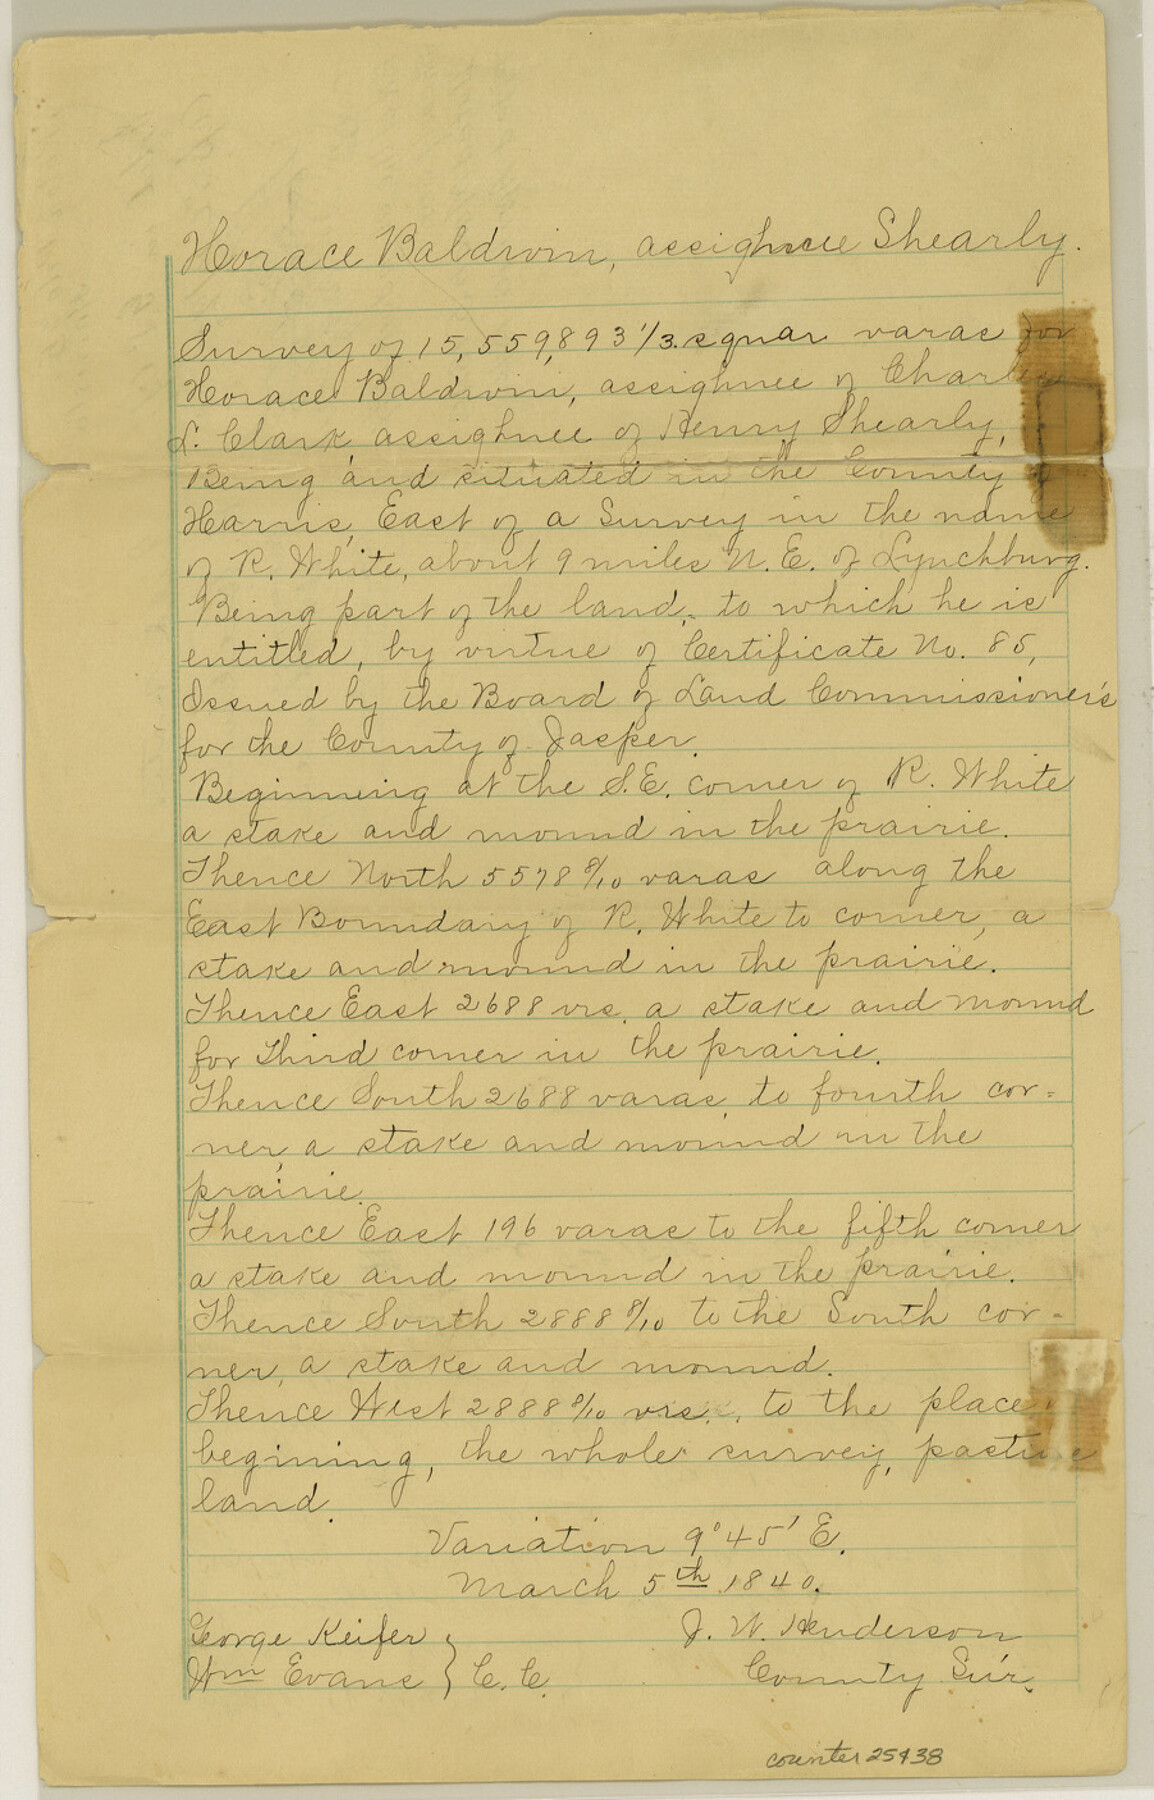 Horace Baldwin, assighnee Shearly.
Survey of 15,559,893 1/3 squar varas for
Horace Baldwin, assighnee of Charles
L. Clark, assighnee of Henry Shearly,
Being and situated in the County of
Harris, East of a Survey in the name
of R. White, about 9 miles N. E. of Lynchburg.
Being part of the land, to which he is
entitled, by virtue of Certificate No. 85,
Issued by the Board of Land Commissioner's
for the County of Jasper.
Beginning at the S.E. corner of R. White
a stake and mound in the prairie.
Thence North 5578 8/10 varas along the
East Boundary of R. White to corner, a
stake and mound in the prairie.
Thence East 2688 vrs. a stake and mound
for Third corner in the prairie.
Thence South 2688 varas, to fourth cor=
ner, a stake and mound in the
prairie.
Thence East 196 varas to the fifth corner
a stake and mound in the prairie.
Thence South 2888 8/10 to the South cor-
ner, a stake and mound.
Thence West 2888 8/10 vrs., to the place
begining, the whole survey, pasture
land.
Variation 9° 45' E.
March 5th 1840.
George Keifer } J. W. Henderson
Wm Evans } C. C. County Sur.
counter 25438